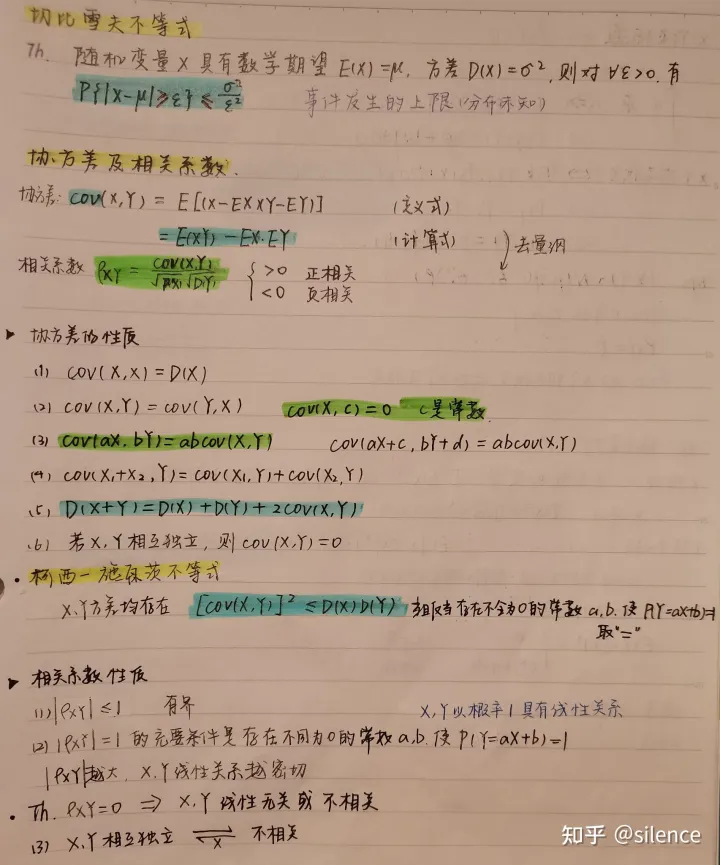 切比雪夫不等式
Th. 随机变量X具有数学期望 E(X)=μ, 方差 D(X)=σ², 则对∀ε>0. 有
P{|X-μ|≥ε} ≤ σ²/ε² 事件发生的上限(分布未知)
协方差及相关系数:
协方差: cov(X,Y) = E[(X-EX)(Y-EY)] (定义式)
= E(XY) - EX·EY (计算式) 去量纲
相关系数 ρXY = cov(X,Y)/√D(X)√D(Y) { >0 正相关
<0 负相关
▶ 协方差的性质
(1) cov(X,X) = D(X)
(2) cov(X,Y) = cov(Y,X) cov(X,c)=0 c是常数
(3) cov(aX,bY)=abcov(X,Y) cov(aX+c,bY+d) = abcov(X,Y)
(4) cov(X₁+X₂,Y)=cov(X₁,Y)+cov(X₂,Y)
(5) D(X+Y)=D(X)+D(Y)+2cov(X,Y)
(6) 若X,Y相互独立, 则cov(X,Y)=0
• 柯西-施瓦茨不等式
X,Y方差均存在 [cov(X,Y)]² ≤ D(X)D(Y) 当且仅当存在不全为0的常数a,b.使P(Y=aX+b)=1
取"="
▶ 相关系数性质
(1) |ρXY| ≤ 1 有界 X,Y以概率1具有线性关系
(2) |ρXY|=1 的充要条件是存在不同为0的常数a,b.使P(Y=aX+b)=1
|ρXY|越大, X,Y线性关系越密切
• Th. ρXY=0 ⇒ X,Y线性无关或不相关
(3) X,Y相互独立 ⇌ 不相关
x
知乎 @silence